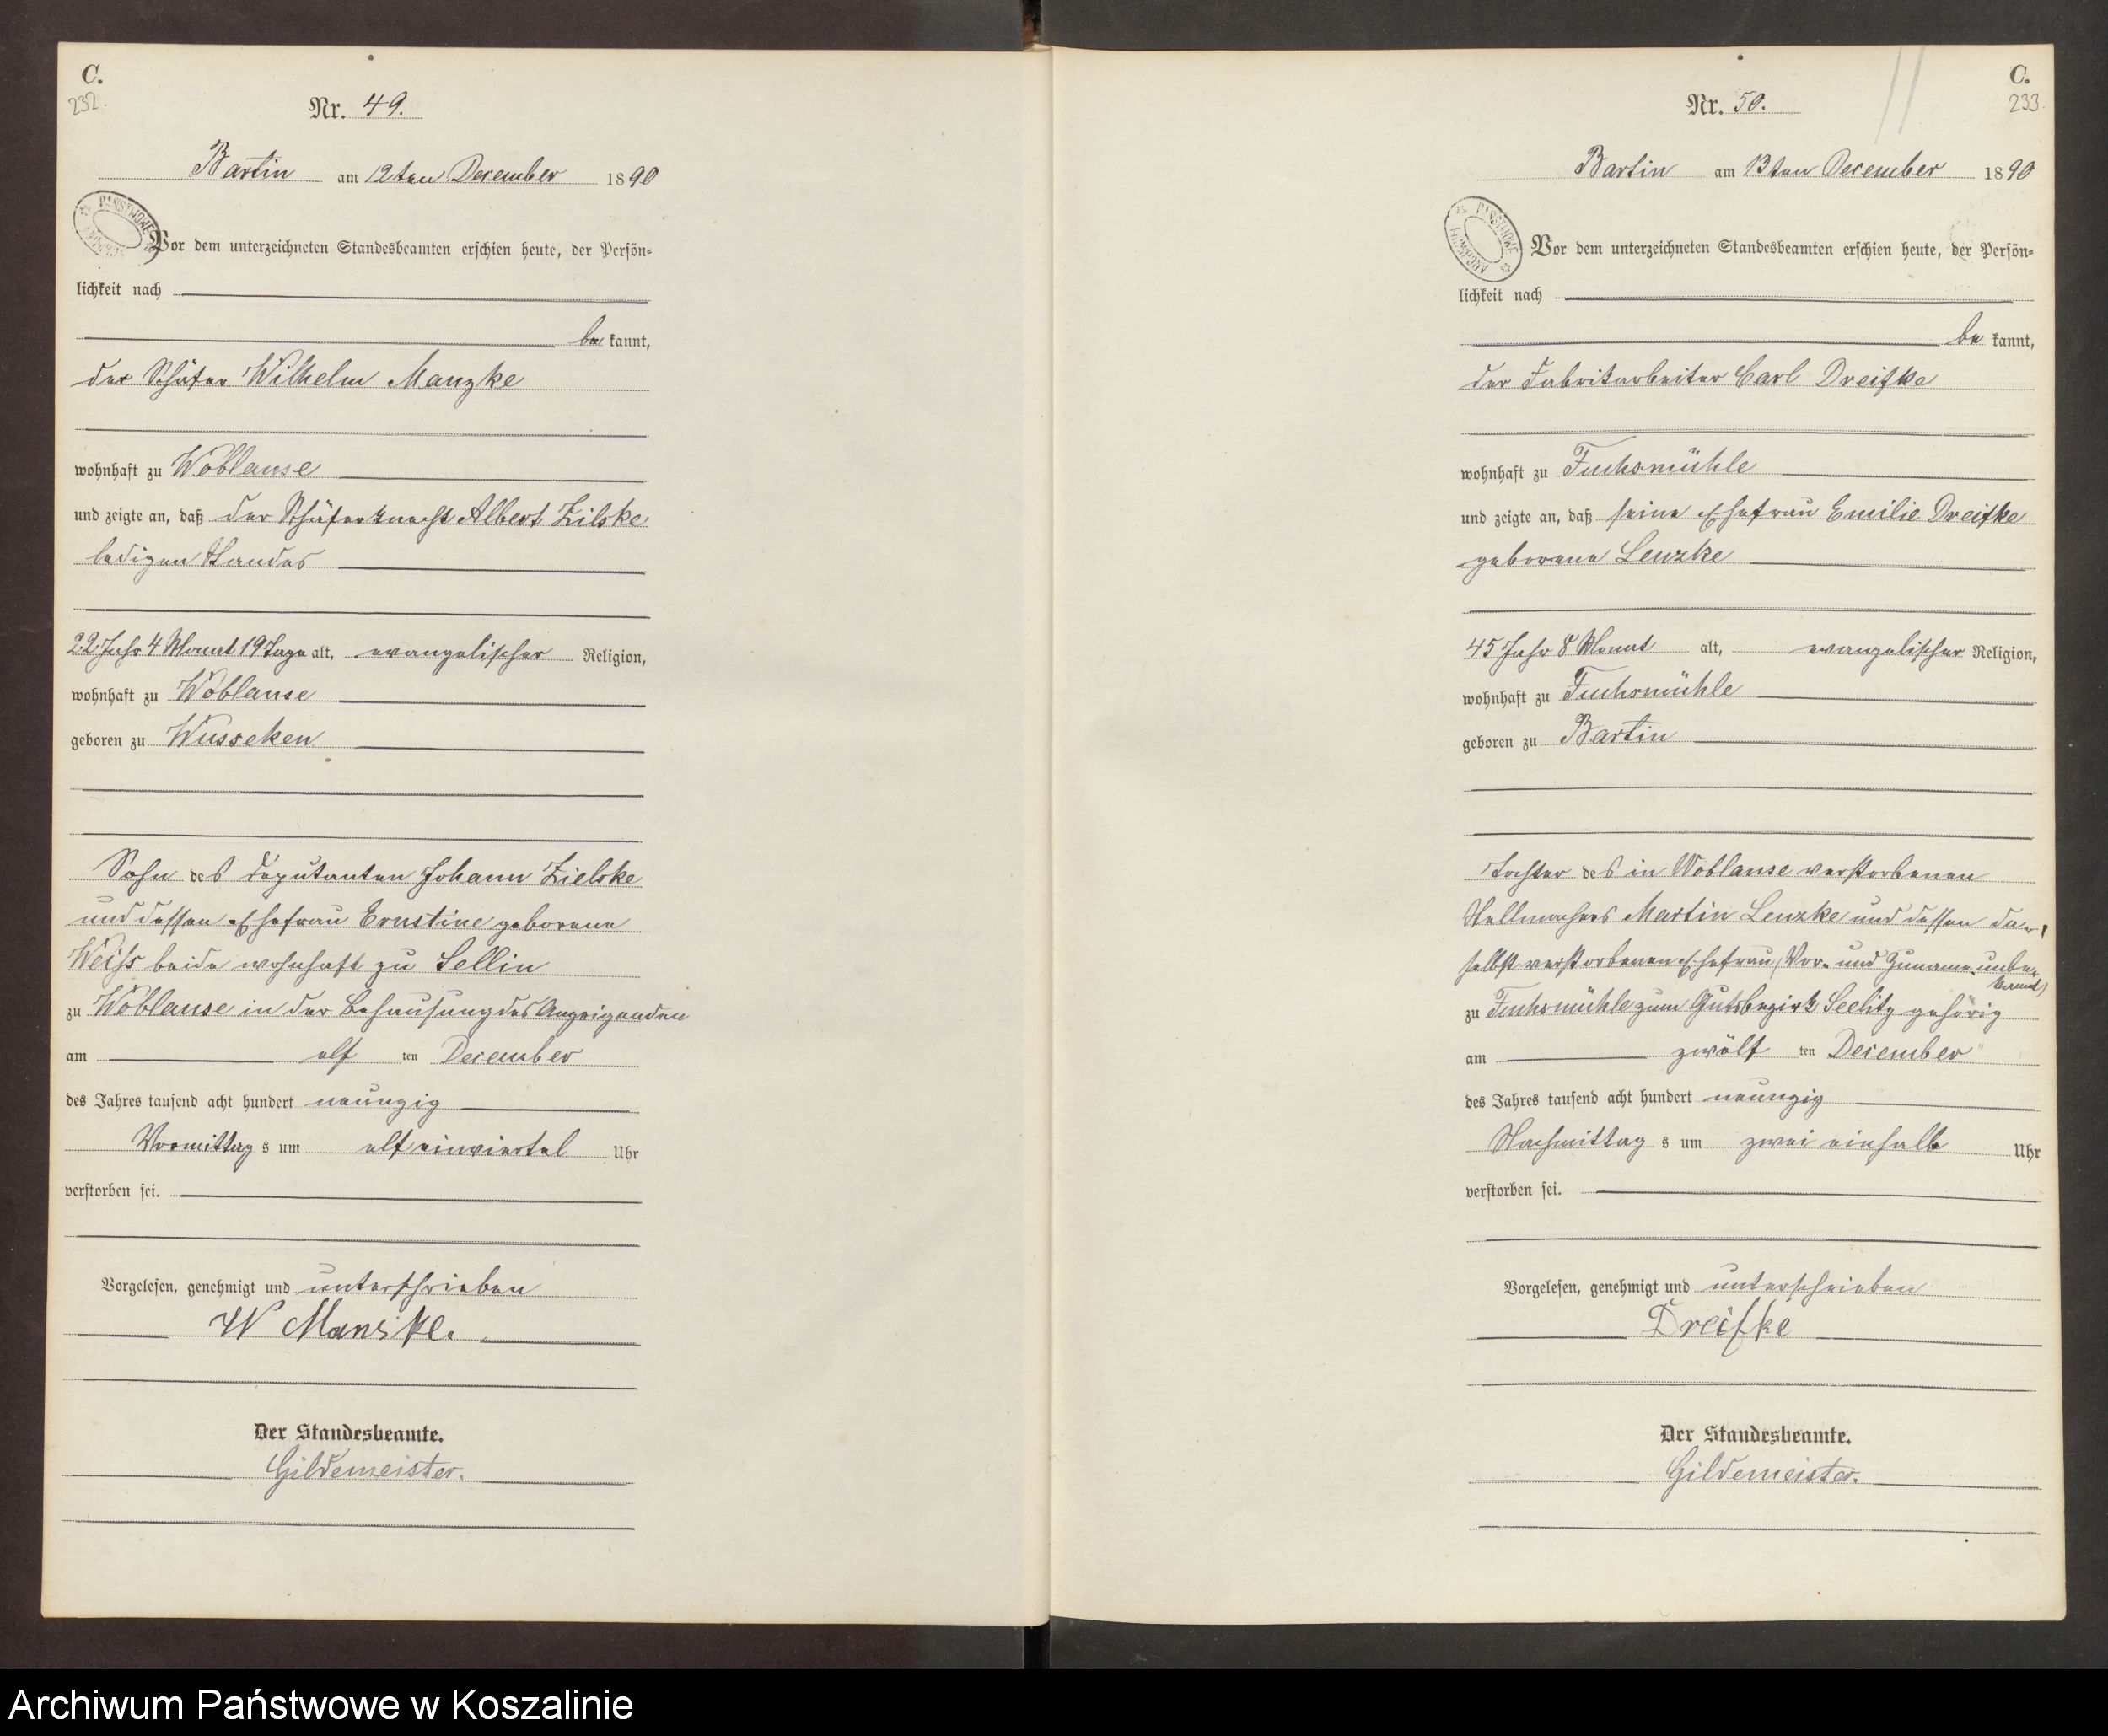 C.
232.
Nr. 49.
Bartin am 12ten December 1890
PAŃSTWOWE ARCHIWUM
Vor dem unterzeichneten Standesbeamten erschien heute, der Persön-
lichkeit nach
bekannt,
der Schäfer Wilhelm Manzke
wohnhaft zu Woblanse
und zeigte an, daß der Schäferknecht Albert Zilske
ledigen Standes
22 Jahr 4 Monat 19 Tage alt, evangelischer Religion,
wohnhaft zu Woblanse
geboren zu Wusseken
Sohn des Deputanten Johann Zielske
und dessen Ehefrau Ernstine geborene
Weiss beide wohnhaft zu Sellin
zu Woblanse in der Behausung des Anzeigenden
am elf ten December
des Jahres tausend acht hundert neunzig
Vormittag s um elf einviertel Uhr
verstorben sei.
Vorgelesen, genehmigt und unterschrieben
W Manske.
Der Standesbeamte.
Gildemeister.
C.
233.
Nr. 50.
Bartin am 13ten December 1890
PAŃSTWOWE ARCHIWUM
Vor dem unterzeichneten Standesbeamten erschien heute, der Persön-
lichkeit nach
bekannt,
der Fabrikarbeiter Carl Dreifke
wohnhaft zu Fuchsmühle
und zeigte an, daß seine Ehefrau Emilie Dreifke
geborene Lenzke
45 Jahr 8 Monat alt, evangelischer Religion,
wohnhaft zu Fuchsmühle
geboren zu Bartin
Tochter des in Woblanse verstorbenen
Stellmachers Martin Lenzke und dessen da-
selbst verstorbenen Ehefrau, Vor- und Zuname unbe-
kannt)
zu Fuchsmühle zum Gutsbezirk Seelitz gehörig
am zwölf ten December
des Jahres tausend acht hundert neunzig
Nachmittag s um zwei einhalb Uhr
verstorben sei.
Vorgelesen, genehmigt und unterschrieben
Dreifke
Der Standesbeamte.
Gildemeister.
Archiwum Państwowe w Koszalinie